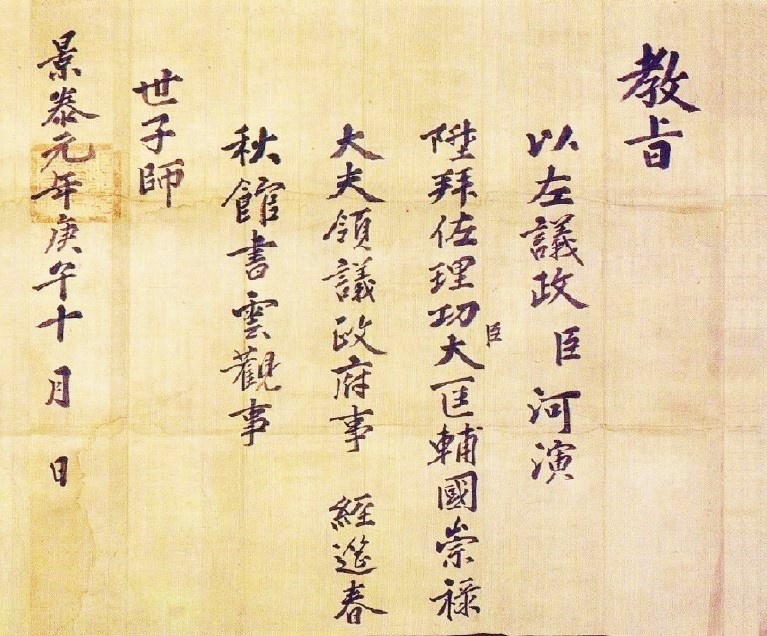 教旨
以左議政 臣 河演
陞拜佐理功臣大匡輔國崇祿
大夫領議政府事 經筵春
秋館書雲觀事
世子師
景泰元年庚午十月 日